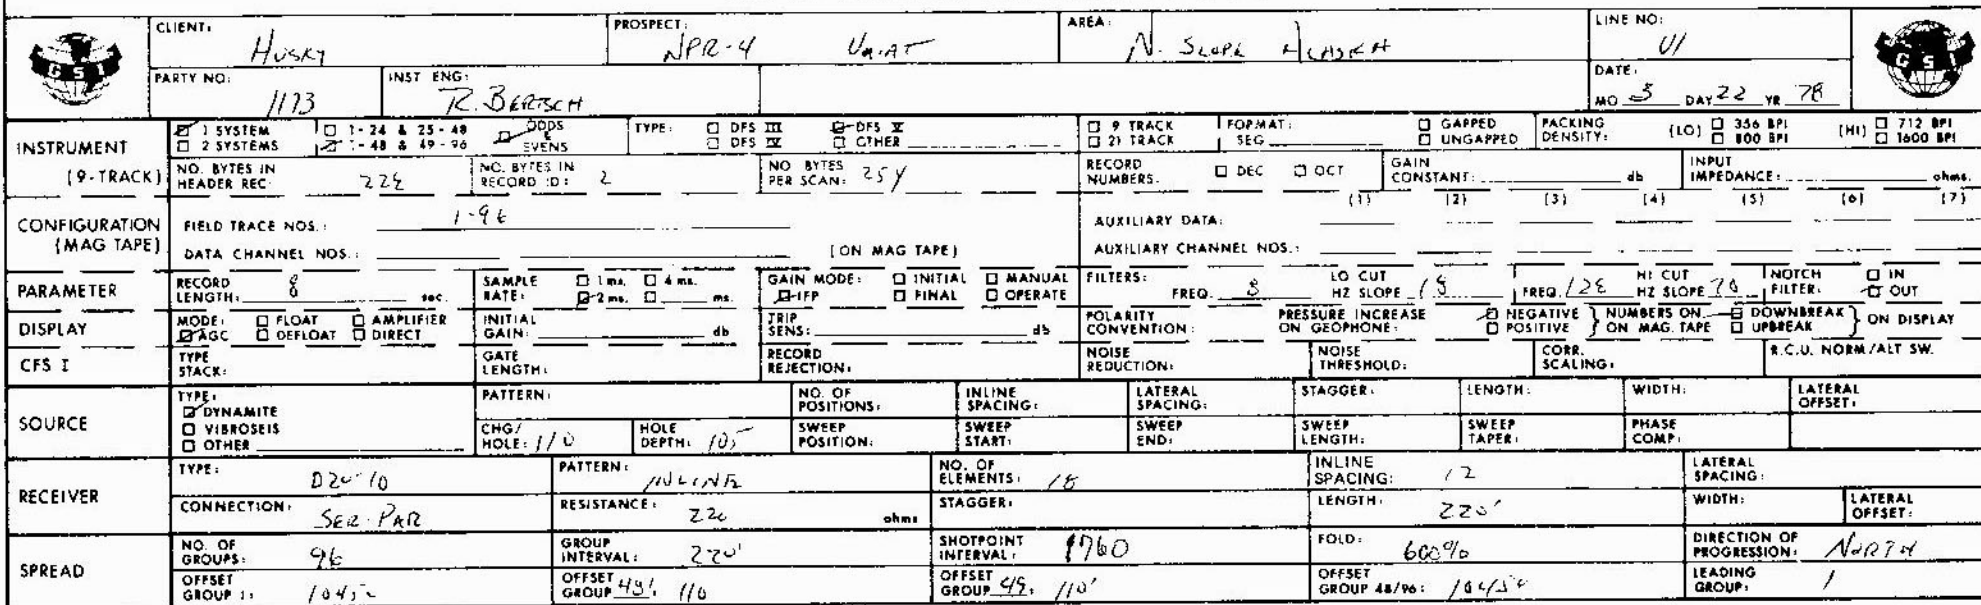 CLIENT: Husky PROSPECT: NPR-4 Umiat AREA: N. Slope Alaska LINE NO: U1
GSI GSI
PARTY NO: 1173 INST ENG: R. BERTSCH DATE: MO 3 DAY 22 YR 78
INSTRUMENT 1 SYSTEM 1-24 & 25-48 ODDS & EVENS TYPE: DFS III DFS V 9 TRACK FORMAT: GAPPED PACKING DENSITY: (LO) 356 BPI (HI) 712 BPI
2 SYSTEMS 1-48 & 49-96 DFS IV OTHER 21 TRACK SEG UNGAPPED 800 BPI 1600 BPI
(9-TRACK) NO. BYTES IN HEADER REC: NO. BYTES IN RECORD ID: 2 NO BYTES PER SCAN: 254 RECORD NUMBERS. DEC OCT GAIN CONSTANT: db INPUT IMPEDANCE: ohms.
CONFIGURATION (MAG TAPE) FIELD TRACE NOS.: 1-96 AUXILIARY DATA: (1) (2) (3) (4) (5) (6) (7)
DATA CHANNEL NOS.: (ON MAG TAPE) AUXILIARY CHANNEL NOS.:
PARAMETER RECORD LENGTH: 8 sec. SAMPLE RATE: 1 ms. 4 ms. 2 ms. ms. GAIN MODE: INITIAL MANUAL IFP FINAL OPERATE FILTERS: FREQ. 8 LO CUT HZ SLOPE 18 FREQ. 128 HI CUT HZ SLOPE 70 NOTCH FILTER: IN OUT
DISPLAY MODE: FLOAT AMPLIFIER AGC DEFLOAT DIRECT INITIAL GAIN: db TRIP SENS: db POLARITY CONVENTION: PRESSURE INCREASE ON GEOPHONE: NEGATIVE POSITIVE NUMBERS ON MAG. TAPE DOWNBREAK UPBREAK ON DISPLAY
CFS I TYPE STACK: GATE LENGTH: RECORD REJECTION: NOISE REDUCTION: NOISE THRESHOLD: CORR. SCALING: R.C.U. NORM/ALT SW.
SOURCE TYPE: DYNAMITE VIBROSEIS OTHER PATTERN: NO. OF POSITIONS: INLINE SPACING: LATERAL SPACING: STAGGER: LENGTH: WIDTH: LATERAL OFFSET:
CHG/HOLE: 110 HOLE DEPTH: 105 SWEEP POSITION: SWEEP START: SWEEP END: SWEEP LENGTH: SWEEP TAPER: PHASE COMP:
RECEIVER TYPE: D20-10 PATTERN: INLINE NO. OF ELEMENTS: 18 INLINE SPACING: 12 LATERAL SPACING:
CONNECTION: SER-PAR RESISTANCE: 220 ohms STAGGER: LENGTH: 220' WIDTH: LATERAL OFFSET:
SPREAD NO. OF GROUPS: 96 GROUP INTERVAL: 220' SHOTPOINT INTERVAL: 1760 FOLD: 600% DIRECTION OF PROGRESSION: NORTH
OFFSET GROUP 1: 10450 OFFSET GROUP 48: 110 OFFSET GROUP 49: 110' OFFSET GROUP 48/96: 10450 LEADING GROUP: 1